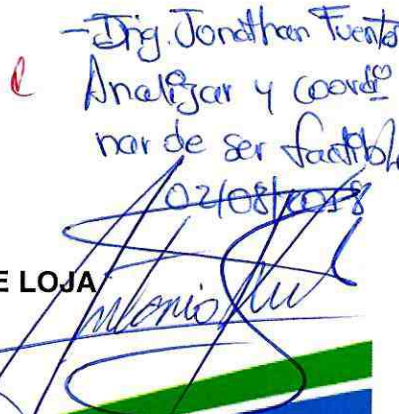 - Ing. Jonathan Fuentes
Analizar y coordi
nar de ser factible
02/08/2018
E LOJA
Antonio